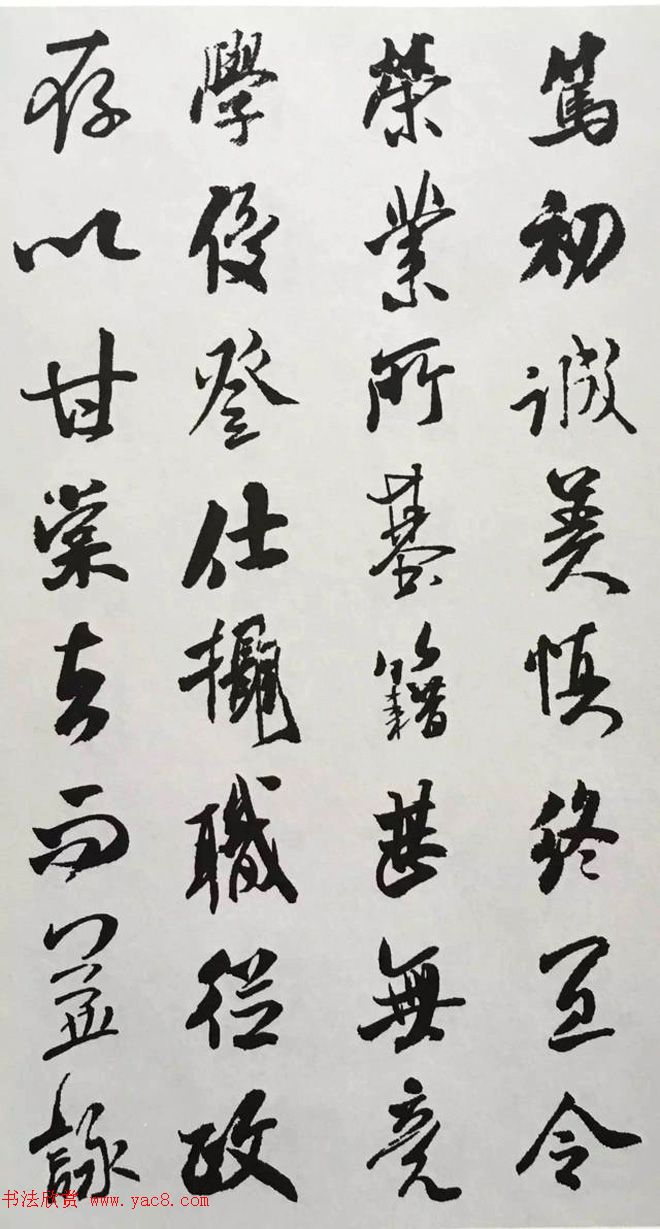 篤初誠美慎終宜令
榮業所基籍甚無竟
學優登仕攝職從政
存以甘棠去而益詠
书法欣赏 www.yac8.com